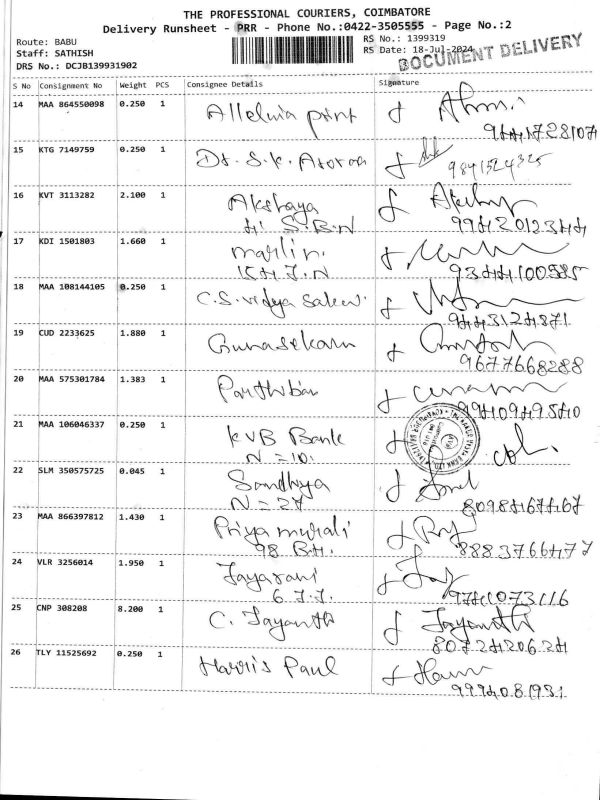 THE PROFESSIONAL COURIERS, COIMBATORE
Delivery Runsheet - PRR - Phone No.:0422-3505555 - Page No.:2
Route: BABU
Staff: SATHISH
DRS No.: DCJB139931902
RS No.: 1399319
RS Date: 18-Jul-2024
DOCUMENT DELIVERY
S No Consignment No Weight PCS Consignee Details Signature
14 MAA 864550098 0.250 1 Alleluia print
15 KTG 7149759 0.250 1 Dr. S.K. Arorra
9841524325
16 KVT 3113282 2.100 1 Akshaya
S.B.N
9942012344
17 KDI 1501803 1.660 1 marlin.
K4 J.N
9344100585
18 MAA 108144105 0.250 1 C.S. vidya
9443124871
19 CUD 2233625 1.880 1 Gunasekaran
9677668288
20 MAA 575301784 1.383 1 Parthiban
9940949540
21 MAA 106046337 0.250 1 KVB Bank
N = 10.
22 SLM 350575725 0.045 1 Sandhya
N = 27
8098467467
23 MAA 866397812 1.430 1 Priya murali
98 B.H.
8883766477
24 VLR 3256014 1.950 1 Jayarani
6 J.J.
9741073116
25 CNP 308208 8.200 1 C. Jayanthi Jayanthi
8072420624
26 TLY 11525692 0.250 1 Harris Paul
9994081931